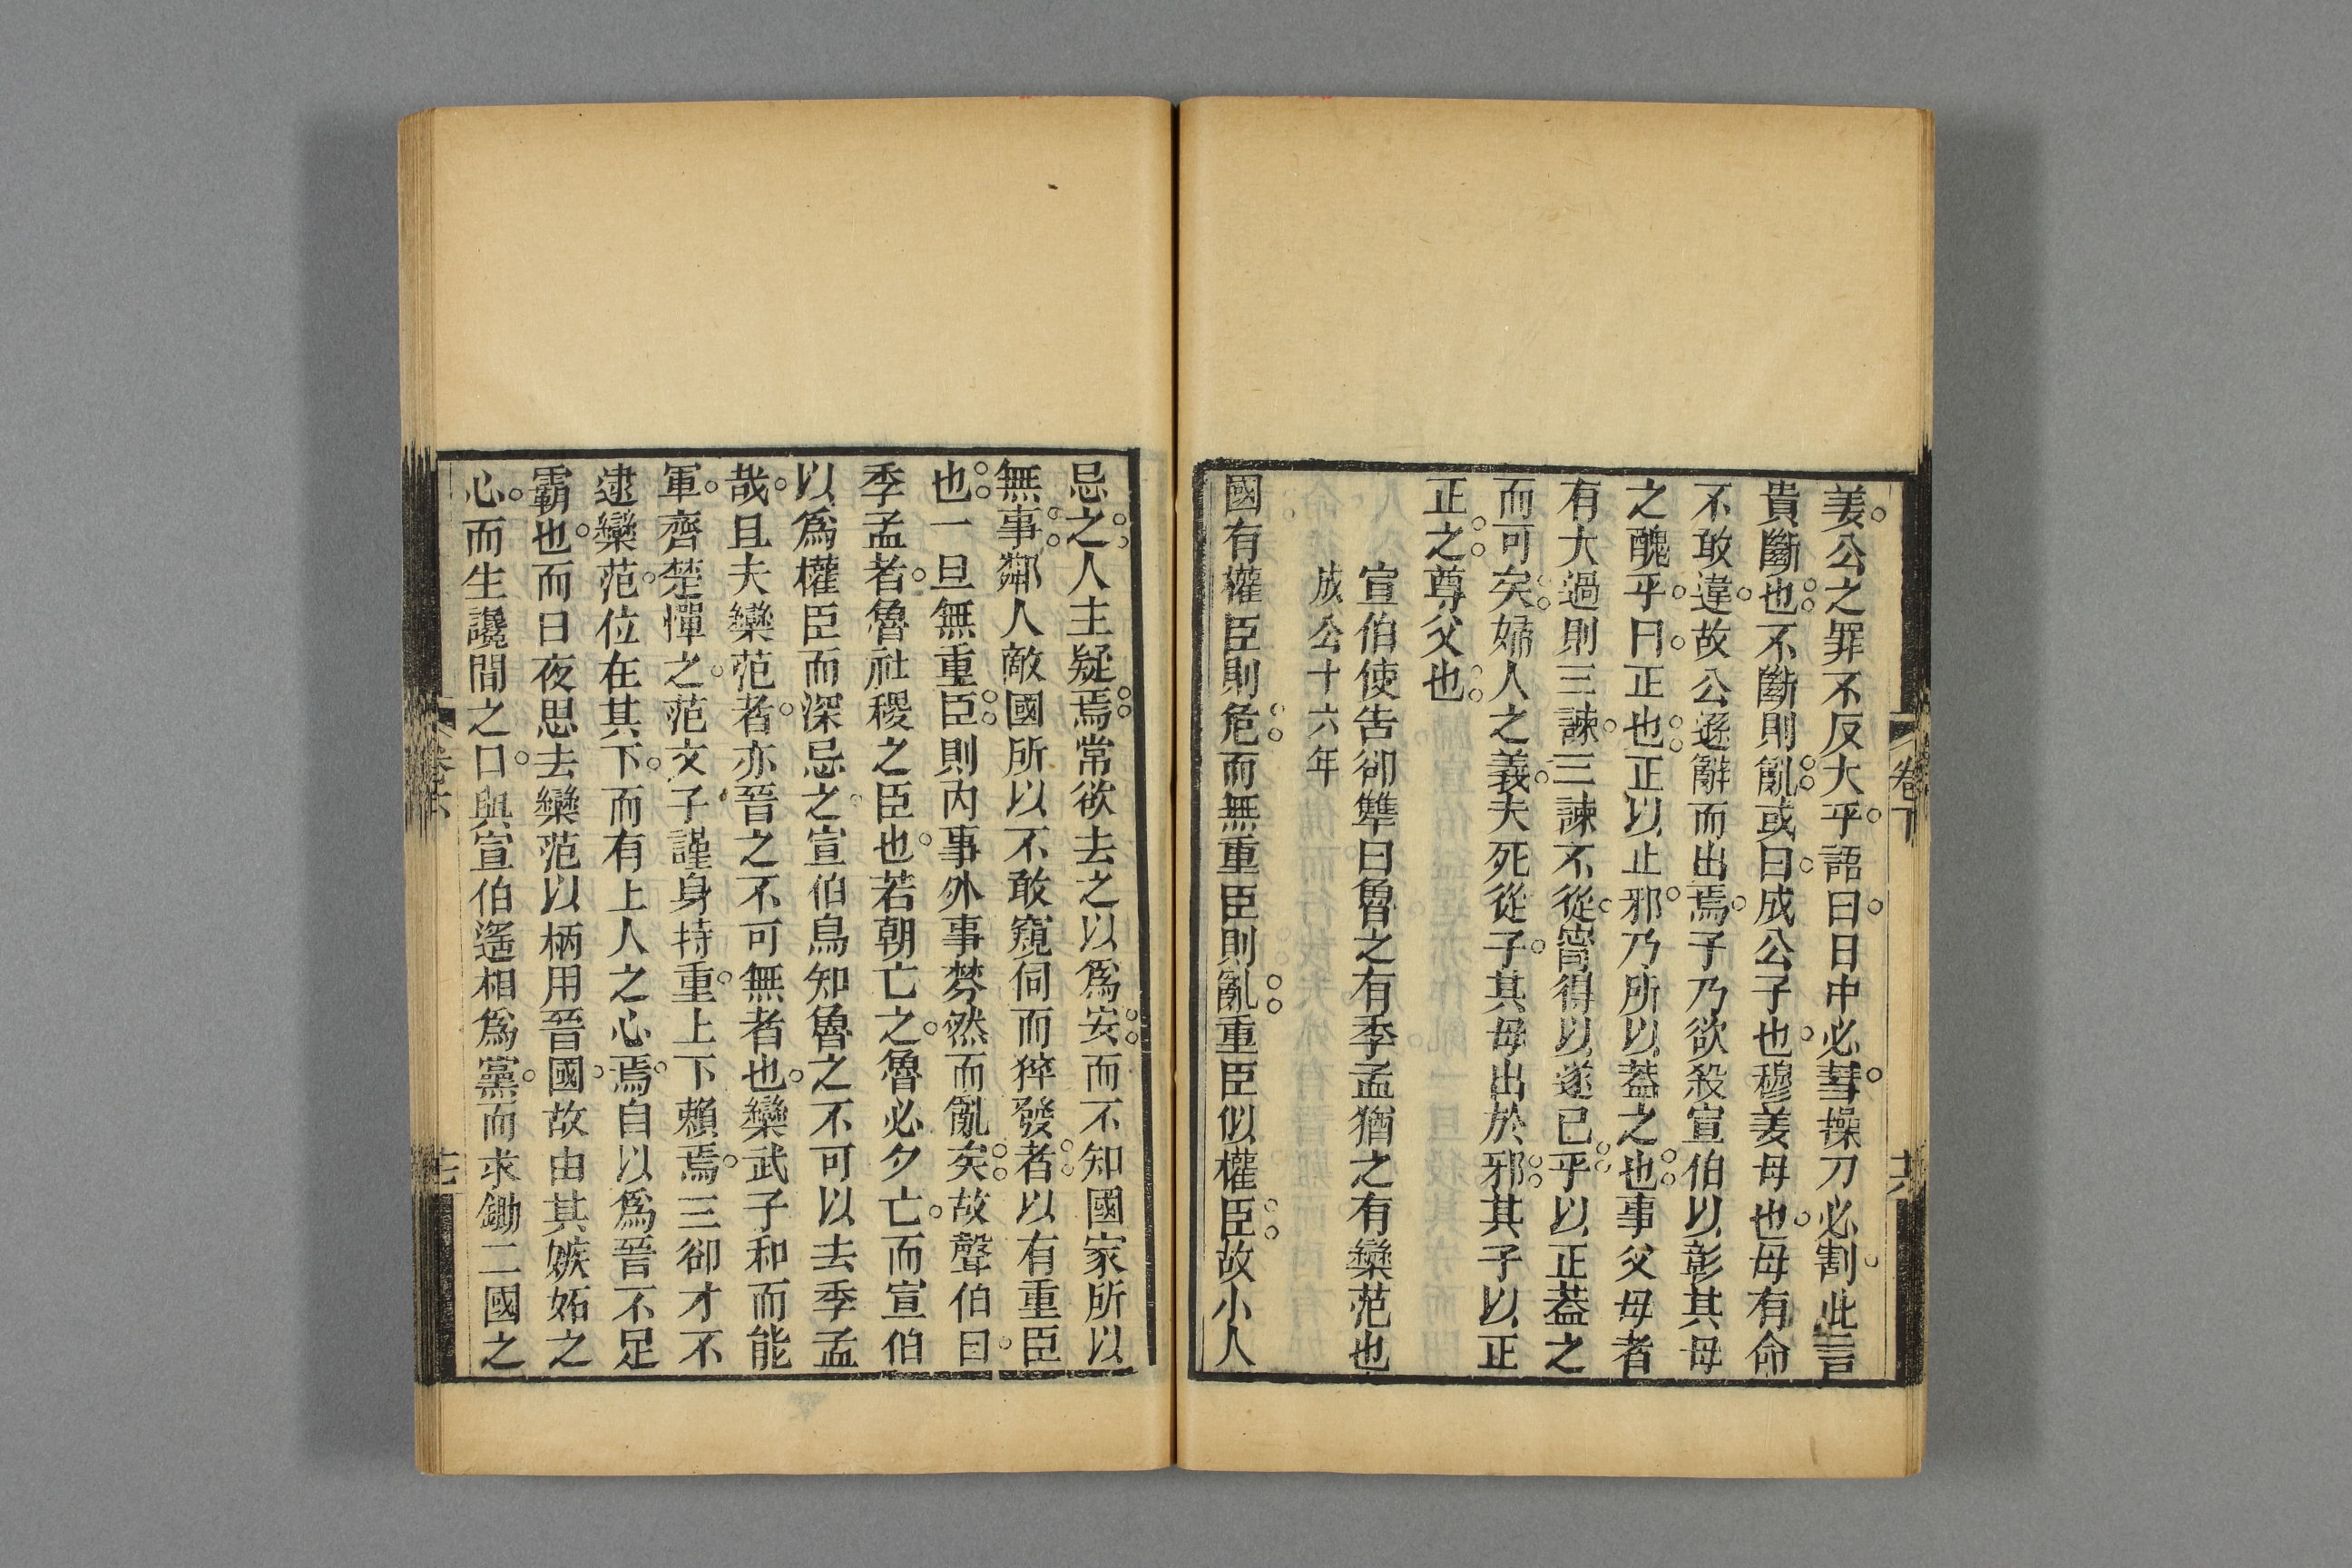 姜公之罪不反大乎語曰日中必彗操刀必割此言
貴斷也不斷則亂或曰成公子也穆姜母也母有命
不敢違故公遜辭而出焉子乃欲殺宣伯以彰其母
之醜乎曰正也正以止邪乃所以蓋之也事父母者
有大過則三諫三諫不從寧得以遂已乎以正蓋之
而可矣婦人之義夫死從子其母出於邪其子以正
正之尊父也
宣伯使告郤犫曰魯之有季孟猶之有欒范也
成公十六年
國有權臣則危而無重臣則亂重臣似權臣故小人
卷下
共
忌之人主疑焉常欲去之以爲安而不知國家所以
無事鄰人敵國所以不敢窺伺而猝發者以有重臣
也一旦無重臣則内事外事棼然而亂矣故聲伯曰
季孟者魯社稷之臣也若朝亡之魯必夕亡而宣伯
以爲權臣而深忌之宣伯烏知魯之不可以去季孟
哉且夫欒范者亦晉之不可無者也欒武子和而能
軍齊楚憚之范文子謹身持重上下賴焉三郤才不
逮欒范位在其下而有上人之心焉自以爲晉不足
霸也而日夜思去欒范以柄用晉國故由其嫉妬之
心而生讒間之口與宣伯遙相爲黨而求鋤二國之